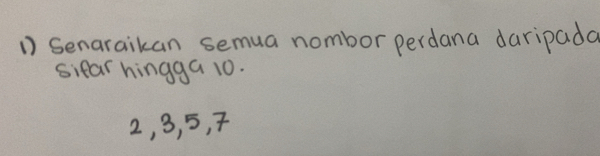 1) Senaraikan semua nombor perdana daripada
sifar hingga 10.
2, 3, 5, 7